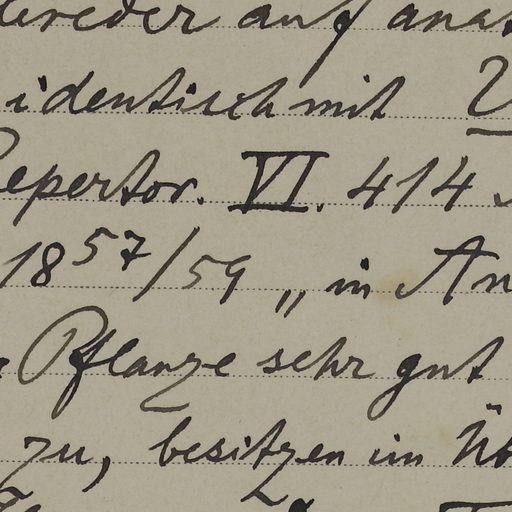 lereder auf anat
identisch mit
Repertor. VI. 414
1857/59 „in An
Pflanze sehr gut
zu, besitzen im Üb